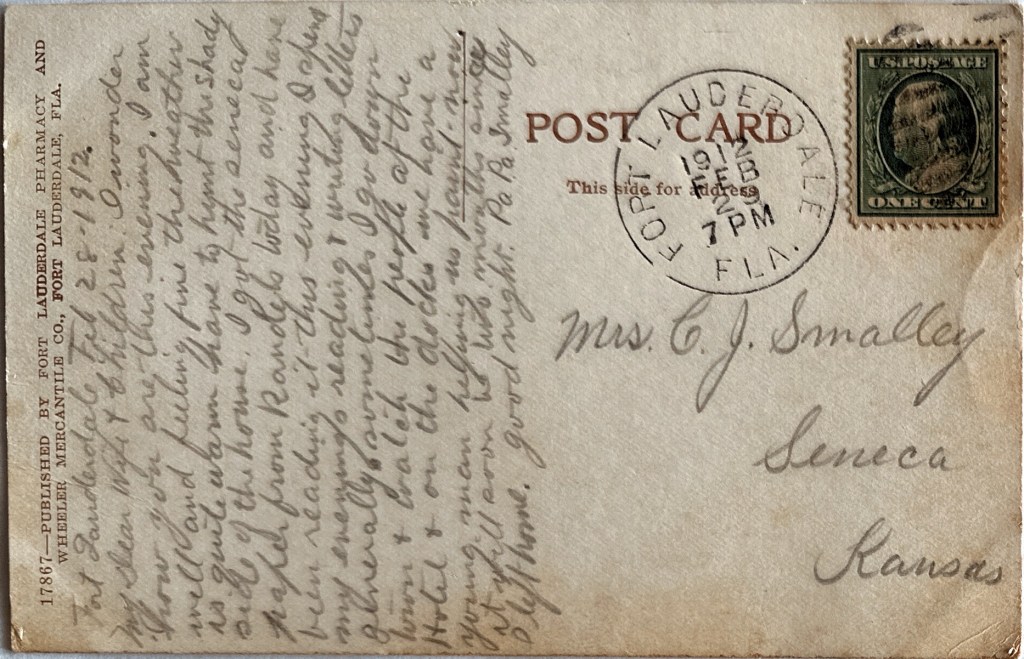 17867—PUBLISHED BY FORT LAUDERDALE PHARMACY AND
WHEELER MERCANTILE CO., FORT LAUDERDALE, FLA.
Fort Lauderdale Feb 28-1912.
My dear Wife & Children. I wonder
how you are this evening. I am
well and feeling fine the weather
is quite warm have to hunt the shady
side of the house. I got the seneca
paper from Randels today and have
been reading it this evening I spend
my evenings reading & writing letters
generally sometimes I go down
town & watch the people at the
Hotel & on the docks we have a
young man helping us paint now.
it will soon be two months since
I left home. good night. Pa Pa Smalley
POST CARD
This side for address
FORT LAUDERDALE
FLA.
1912
FEB
29
7 PM
U.S. POSTAGE
ONE CENT
Mrs. C. J. Smalley
Seneca
Kansas